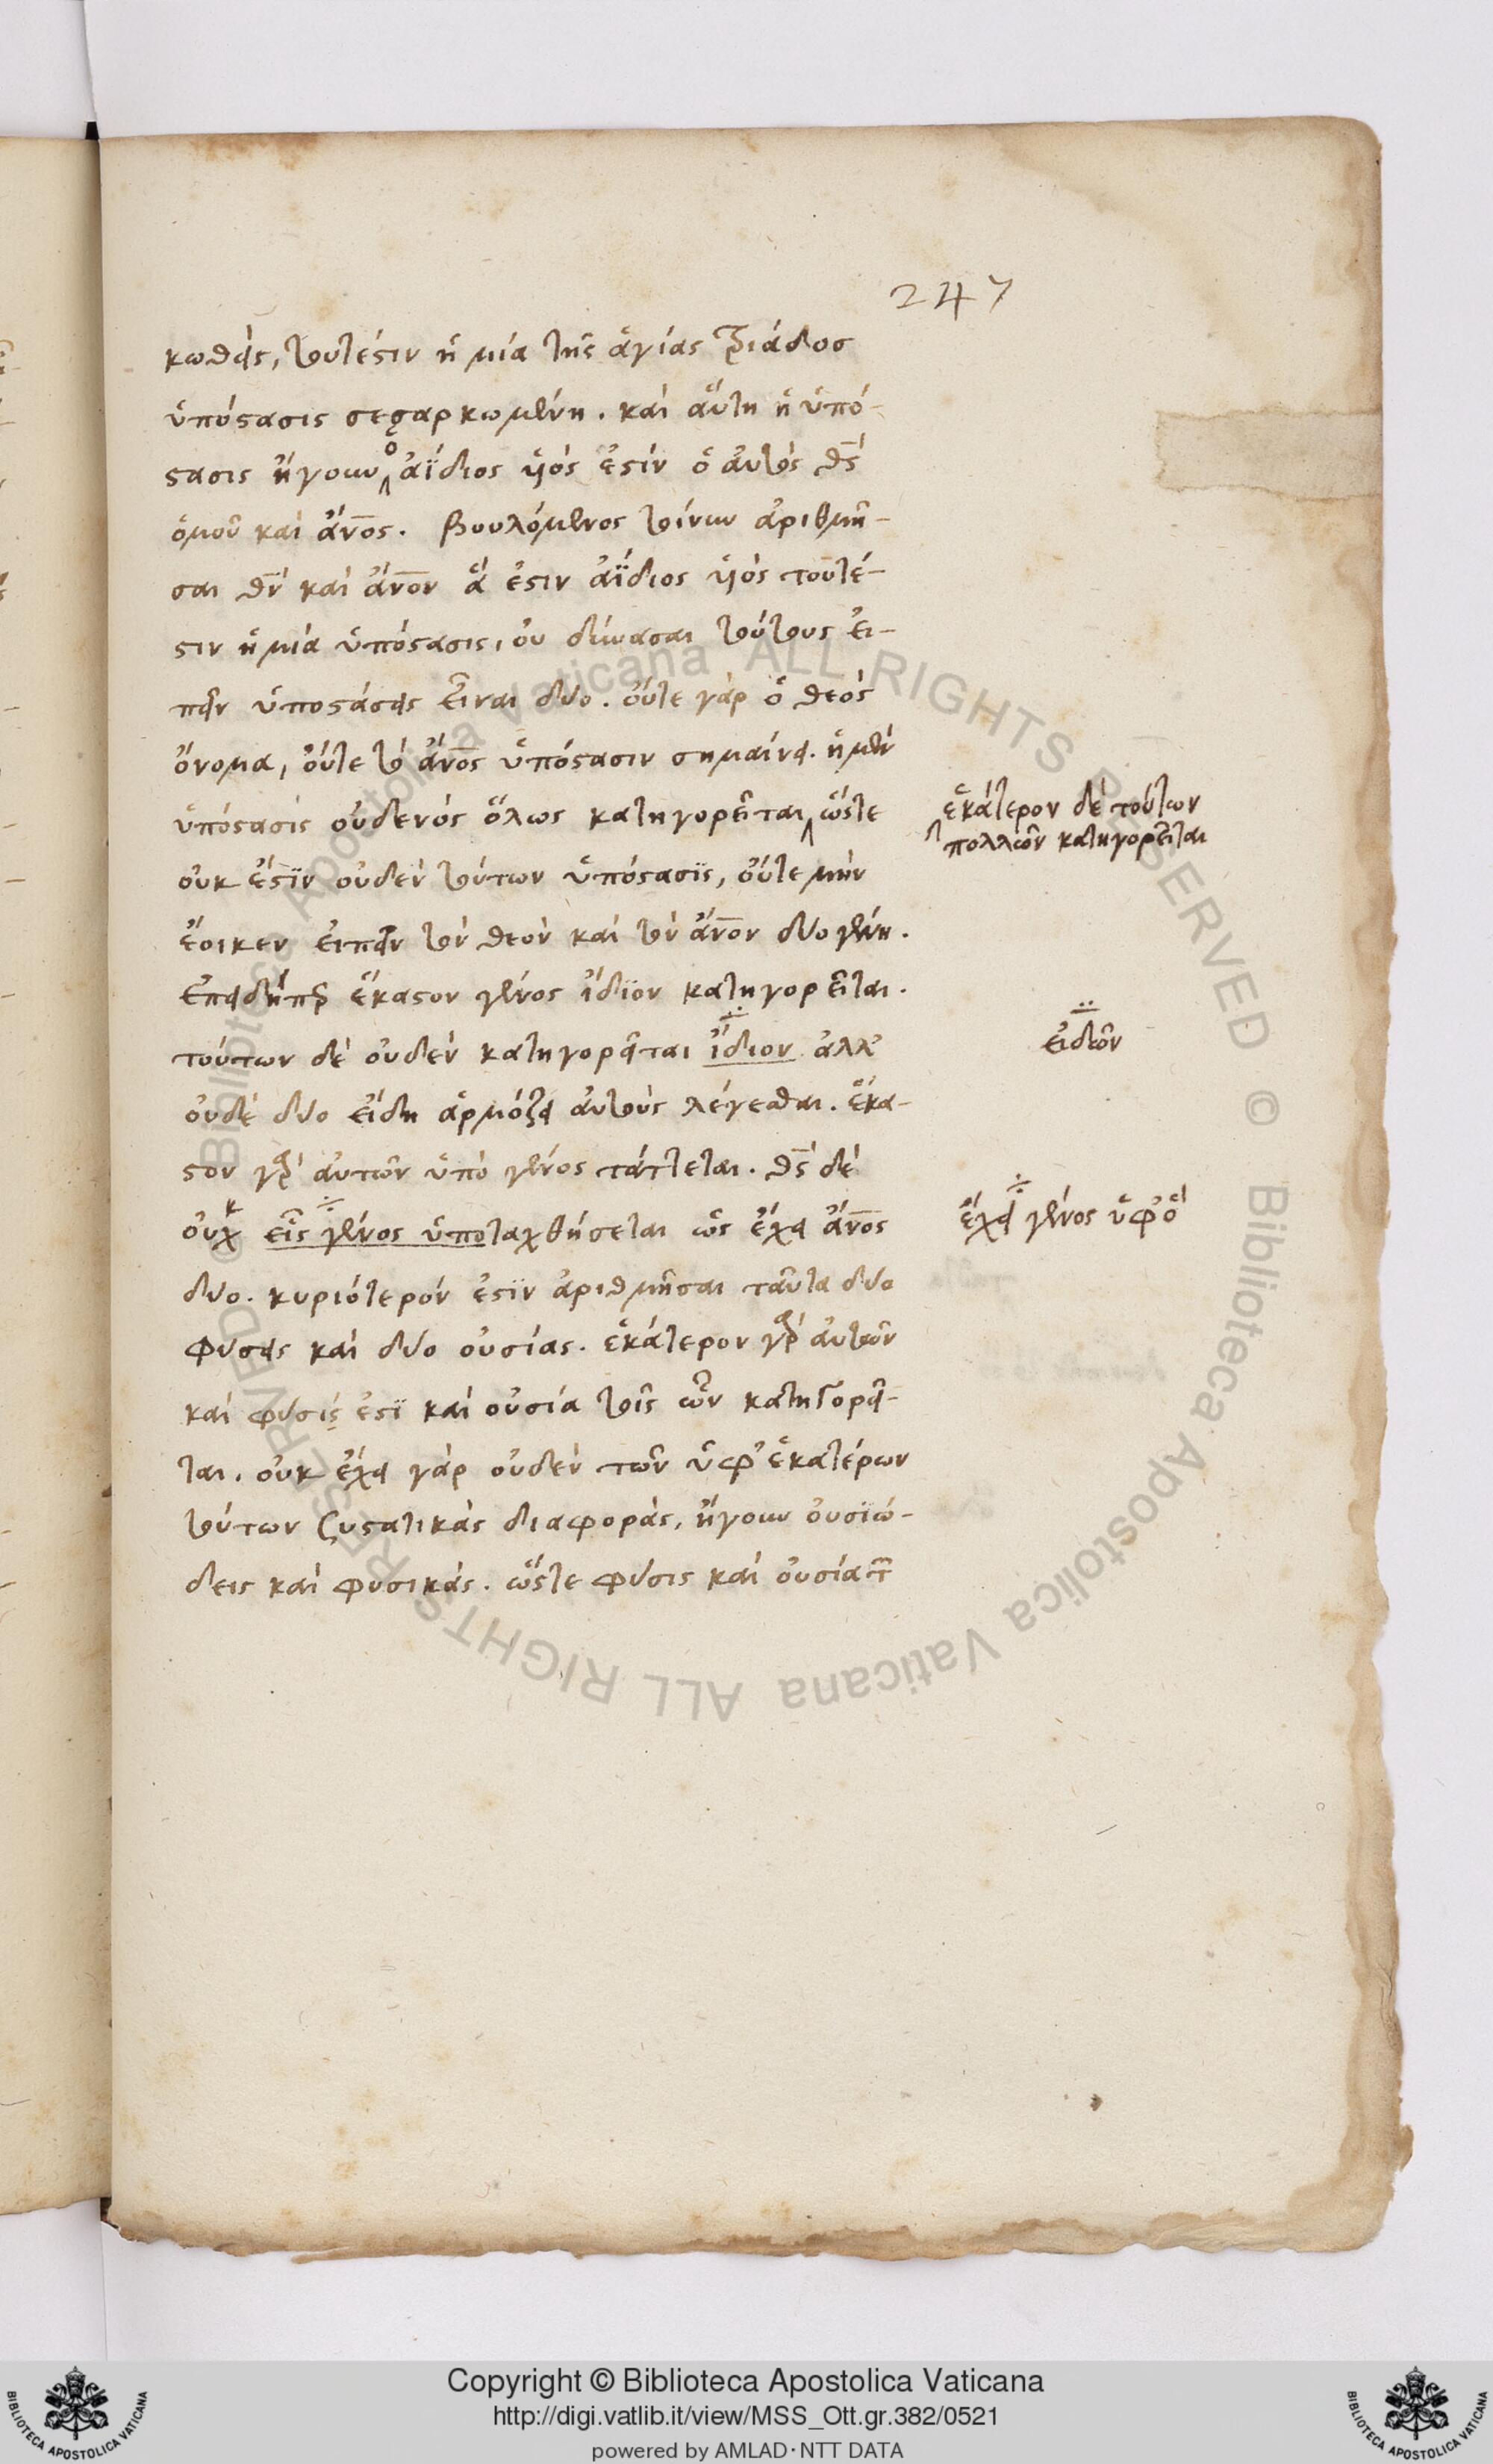 247
κωθεὶς, τουτέστιν ἡ μία τῆς ἁγίας τριάδος
ὑπόστασις σεσαρκωμένη. καὶ αὕτη ἡ ὑπό-
στασις ἤγουν ὁ ἀΐδιος υἱός ἐστίν ὁ αὐτὸς θς
ὁμοῦ καὶ ἄνος. βουλόμενος τοίνυν ἀριθμῆ-
σαι θν καὶ ἄνον ἅ ἐστιν ἀΐδιος υἱὸς τουτέ-
στιν ἡ μία ὑπόστασις, οὐ δύνασαι τούτους εἰ-
πεῖν ὑποστάσεις εἶναι δύο. οὔτε γὰρ ὁ θεὸς
ὄνομα, οὔτε τὸ ἄνος ὑπόστασιν σημαίνει. ἡ μὲν
ὑπόστασις οὐδενός ὅλως κατηγορεῖται, ὥστε
ἑκάτερον δὲ τούτων
πολλῶν κατηγορεῖται
οὐκ ἔστϊν οὐδὲν τούτων ὑπόστασϊς, οὔτε μὴν
ἔοικεν εἰπεῖν τὸν θεὸν καὶ τὸν ἄνον δύο γένη.
ἐπειδήπερ ἕκαστον γένος ἰδϊον κατηγορεῖται.
τούτων δὲ οὐδὲν κατηγορεῖται ἴδιον ἀλλ᾽
εἰδῶν
οὐδὲ δύο εἴδη ἁρμόζει αὐτοὺς λέγεσθαι. ἕκα-
στον γὰρ αὐτῶν ὑπὸ γένος τάττεται. θς δὲ
οὐχ εἷς γένος ὑποταχθήσεται ὡς ἔχει ἄνος
ἔχει γένος ὑφ᾽ ὃ
δύο. κυριότερόν ἐστϊν ἀριθμῆσαι ταῦτα δύο
φύσεις καὶ δύο οὐσίας. ἑκάτερον γὰρ αὐτῶν
καὶ φύσις ἐστϊ καὶ οὐσία τοῖς ὧν κατηγορεῖ-
ται. οὐκ ἔχει γὰρ οὐδὲν τῶν ὑφ᾽ ἑκατέρων
τούτων ζυστατικὰς διαφοράς, ἤγουν οὐσϊώ-
δεις καὶ φυσικάς. ὥστε φύσις καὶ οὐσία
© Biblioteca Apostolica Vaticana ALL RIGHTS RESERVED
© Biblioteca Apostolica Vaticana ALL RIGHTS RESERVED
Copyright © Biblioteca Apostolica Vaticana
http://digi.vatlib.it/view/MSS_Ott.gr.382/0521
powered by AMLAD·NTT DATA
BIBLIOTECA APOSTOLICA VATICANA
BIBLIOTECA APOSTOLICA VATICANA